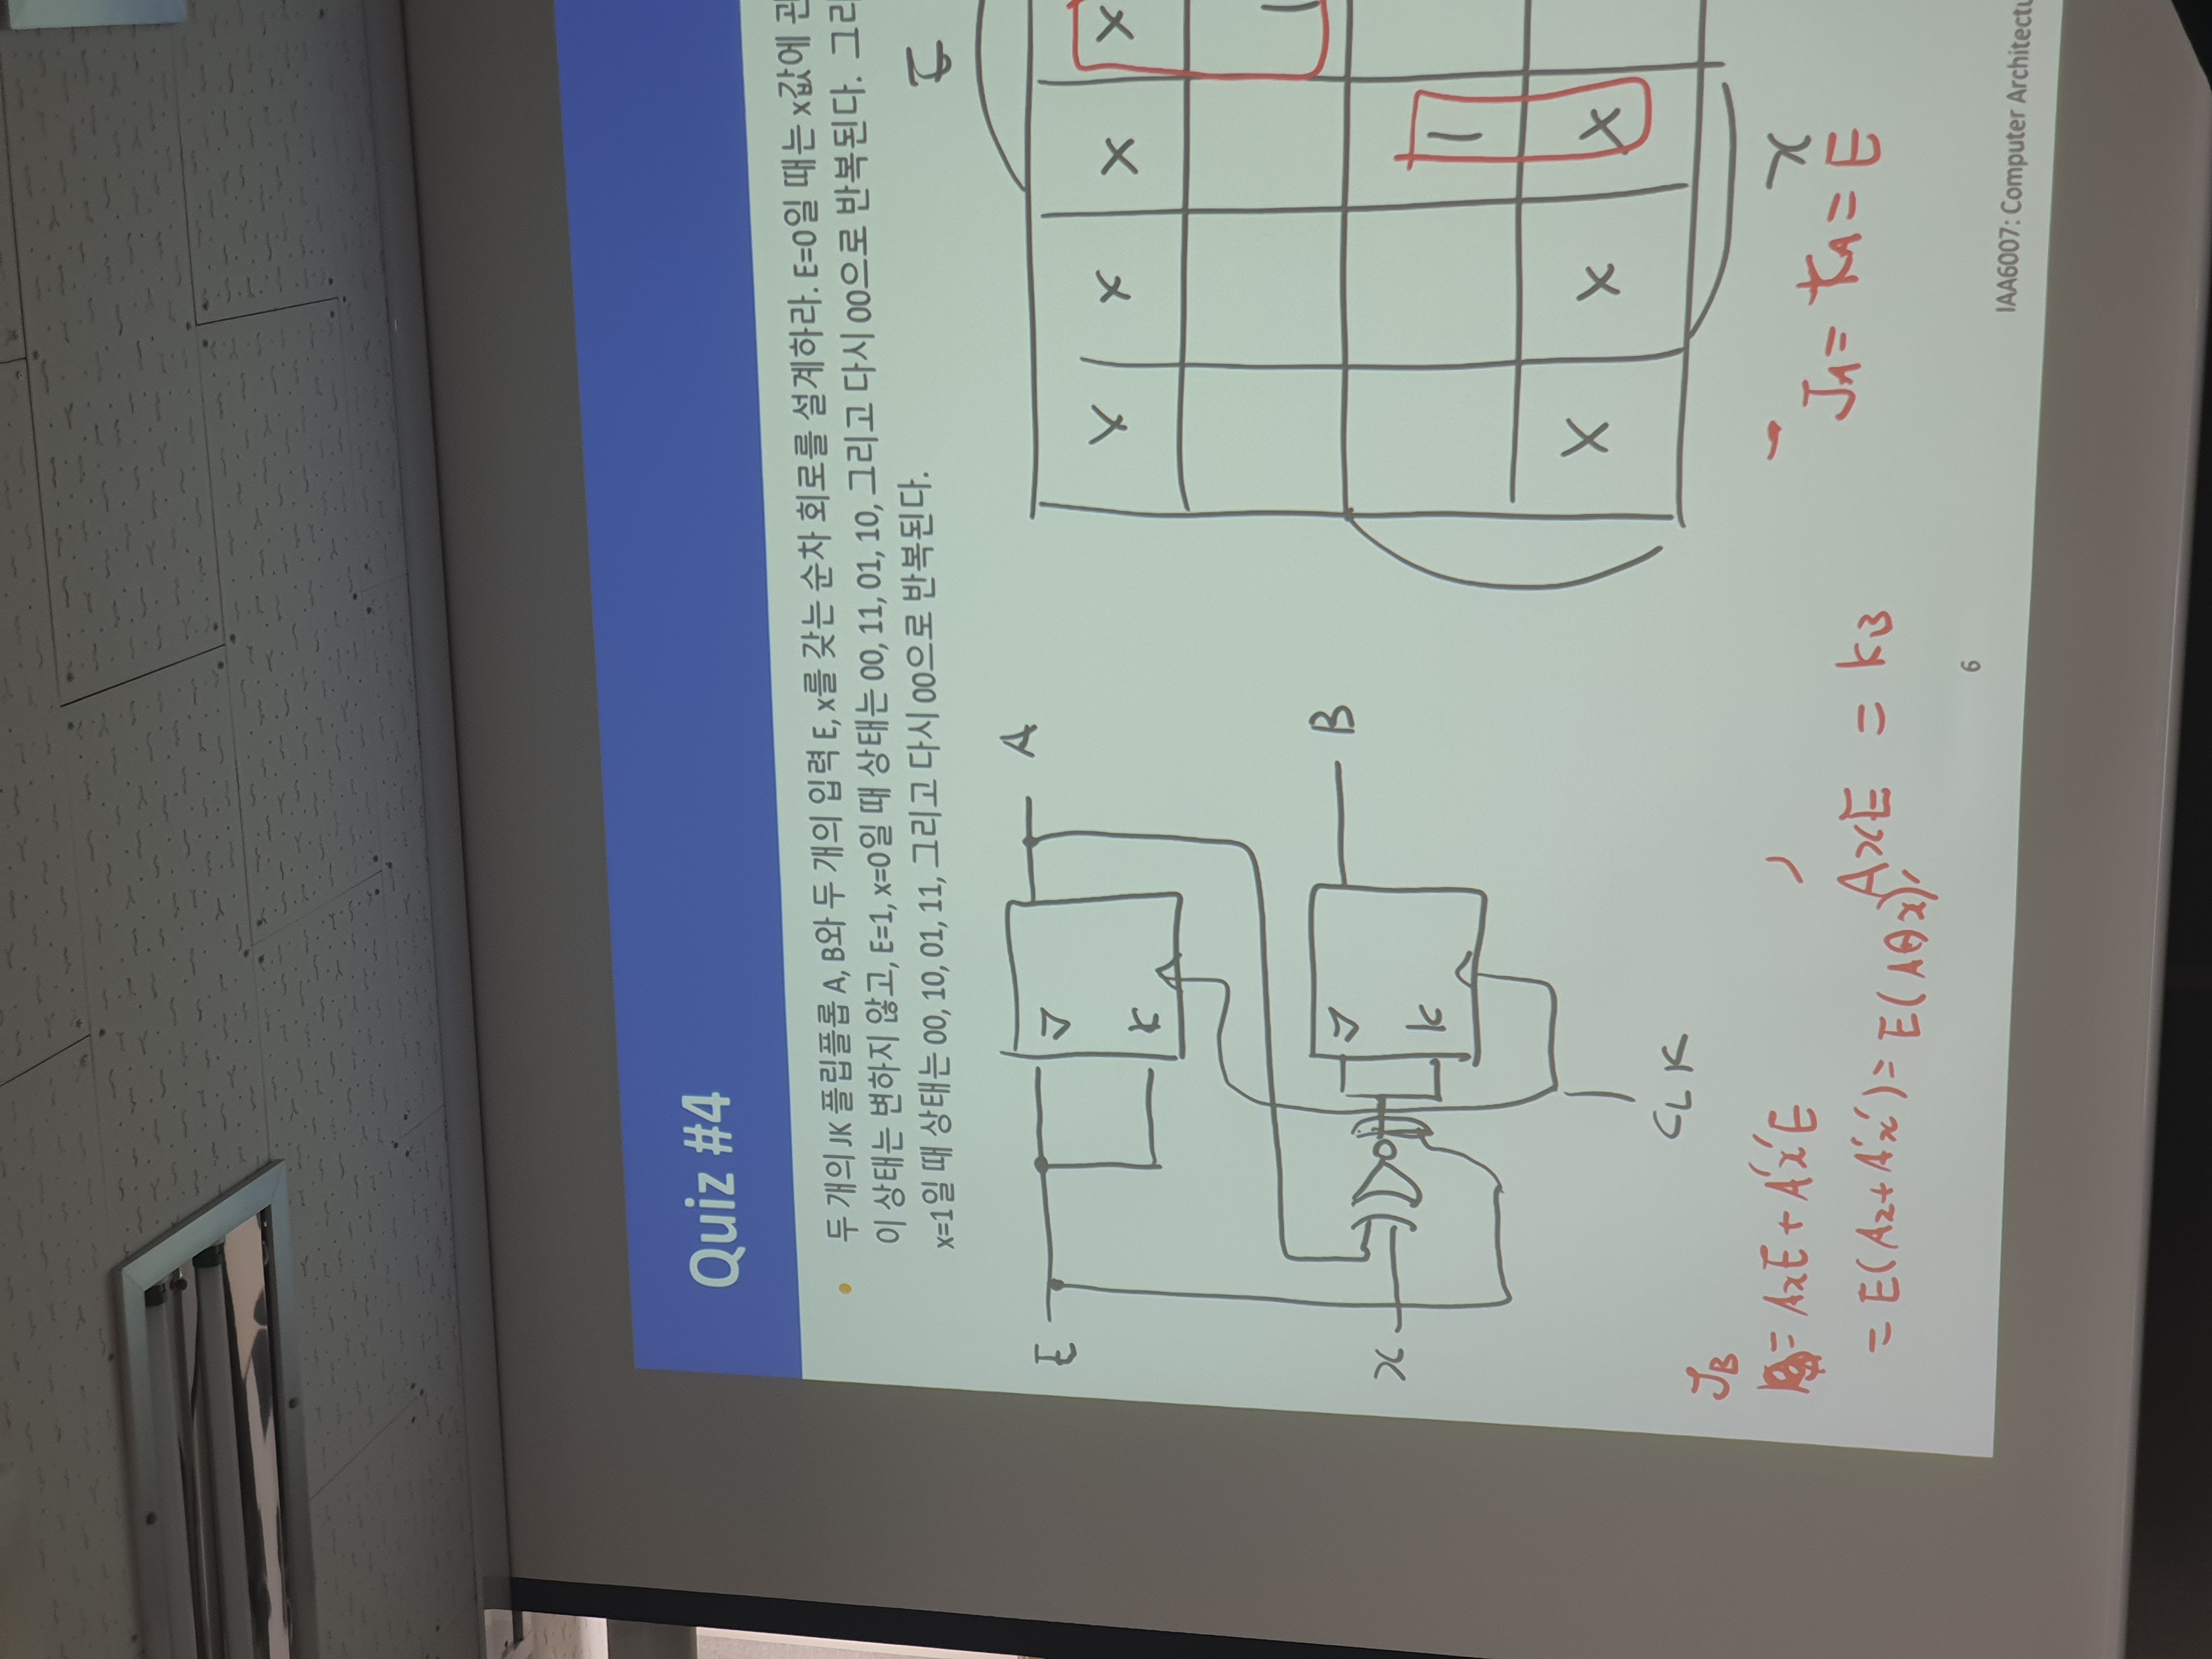 Quiz #4
두 개의 JK 플립플롭 A, B와 두 개의 입력 E, x를 갖는 순차 회로를 설계하라. E=0일 때는 x값에
이 상태는 변하지 않고, E=1, x=0일 때 상태는 00, 11, 01, 10, 그리고 다시 00으로 반복된다.
x=1일 때 상태는 00, 10, 01, 11, 그리고 다시 00으로 반복된다.
E
E
J
A
K
x
J
B
K
CLK
X X X X
1
1
X X X
x
J_B
= AxE + A'x'E
= E(Ax + A'x') = E(A⊕x)'
AxE = K_B
J_A = K_A = E
6
IAA6007: Computer